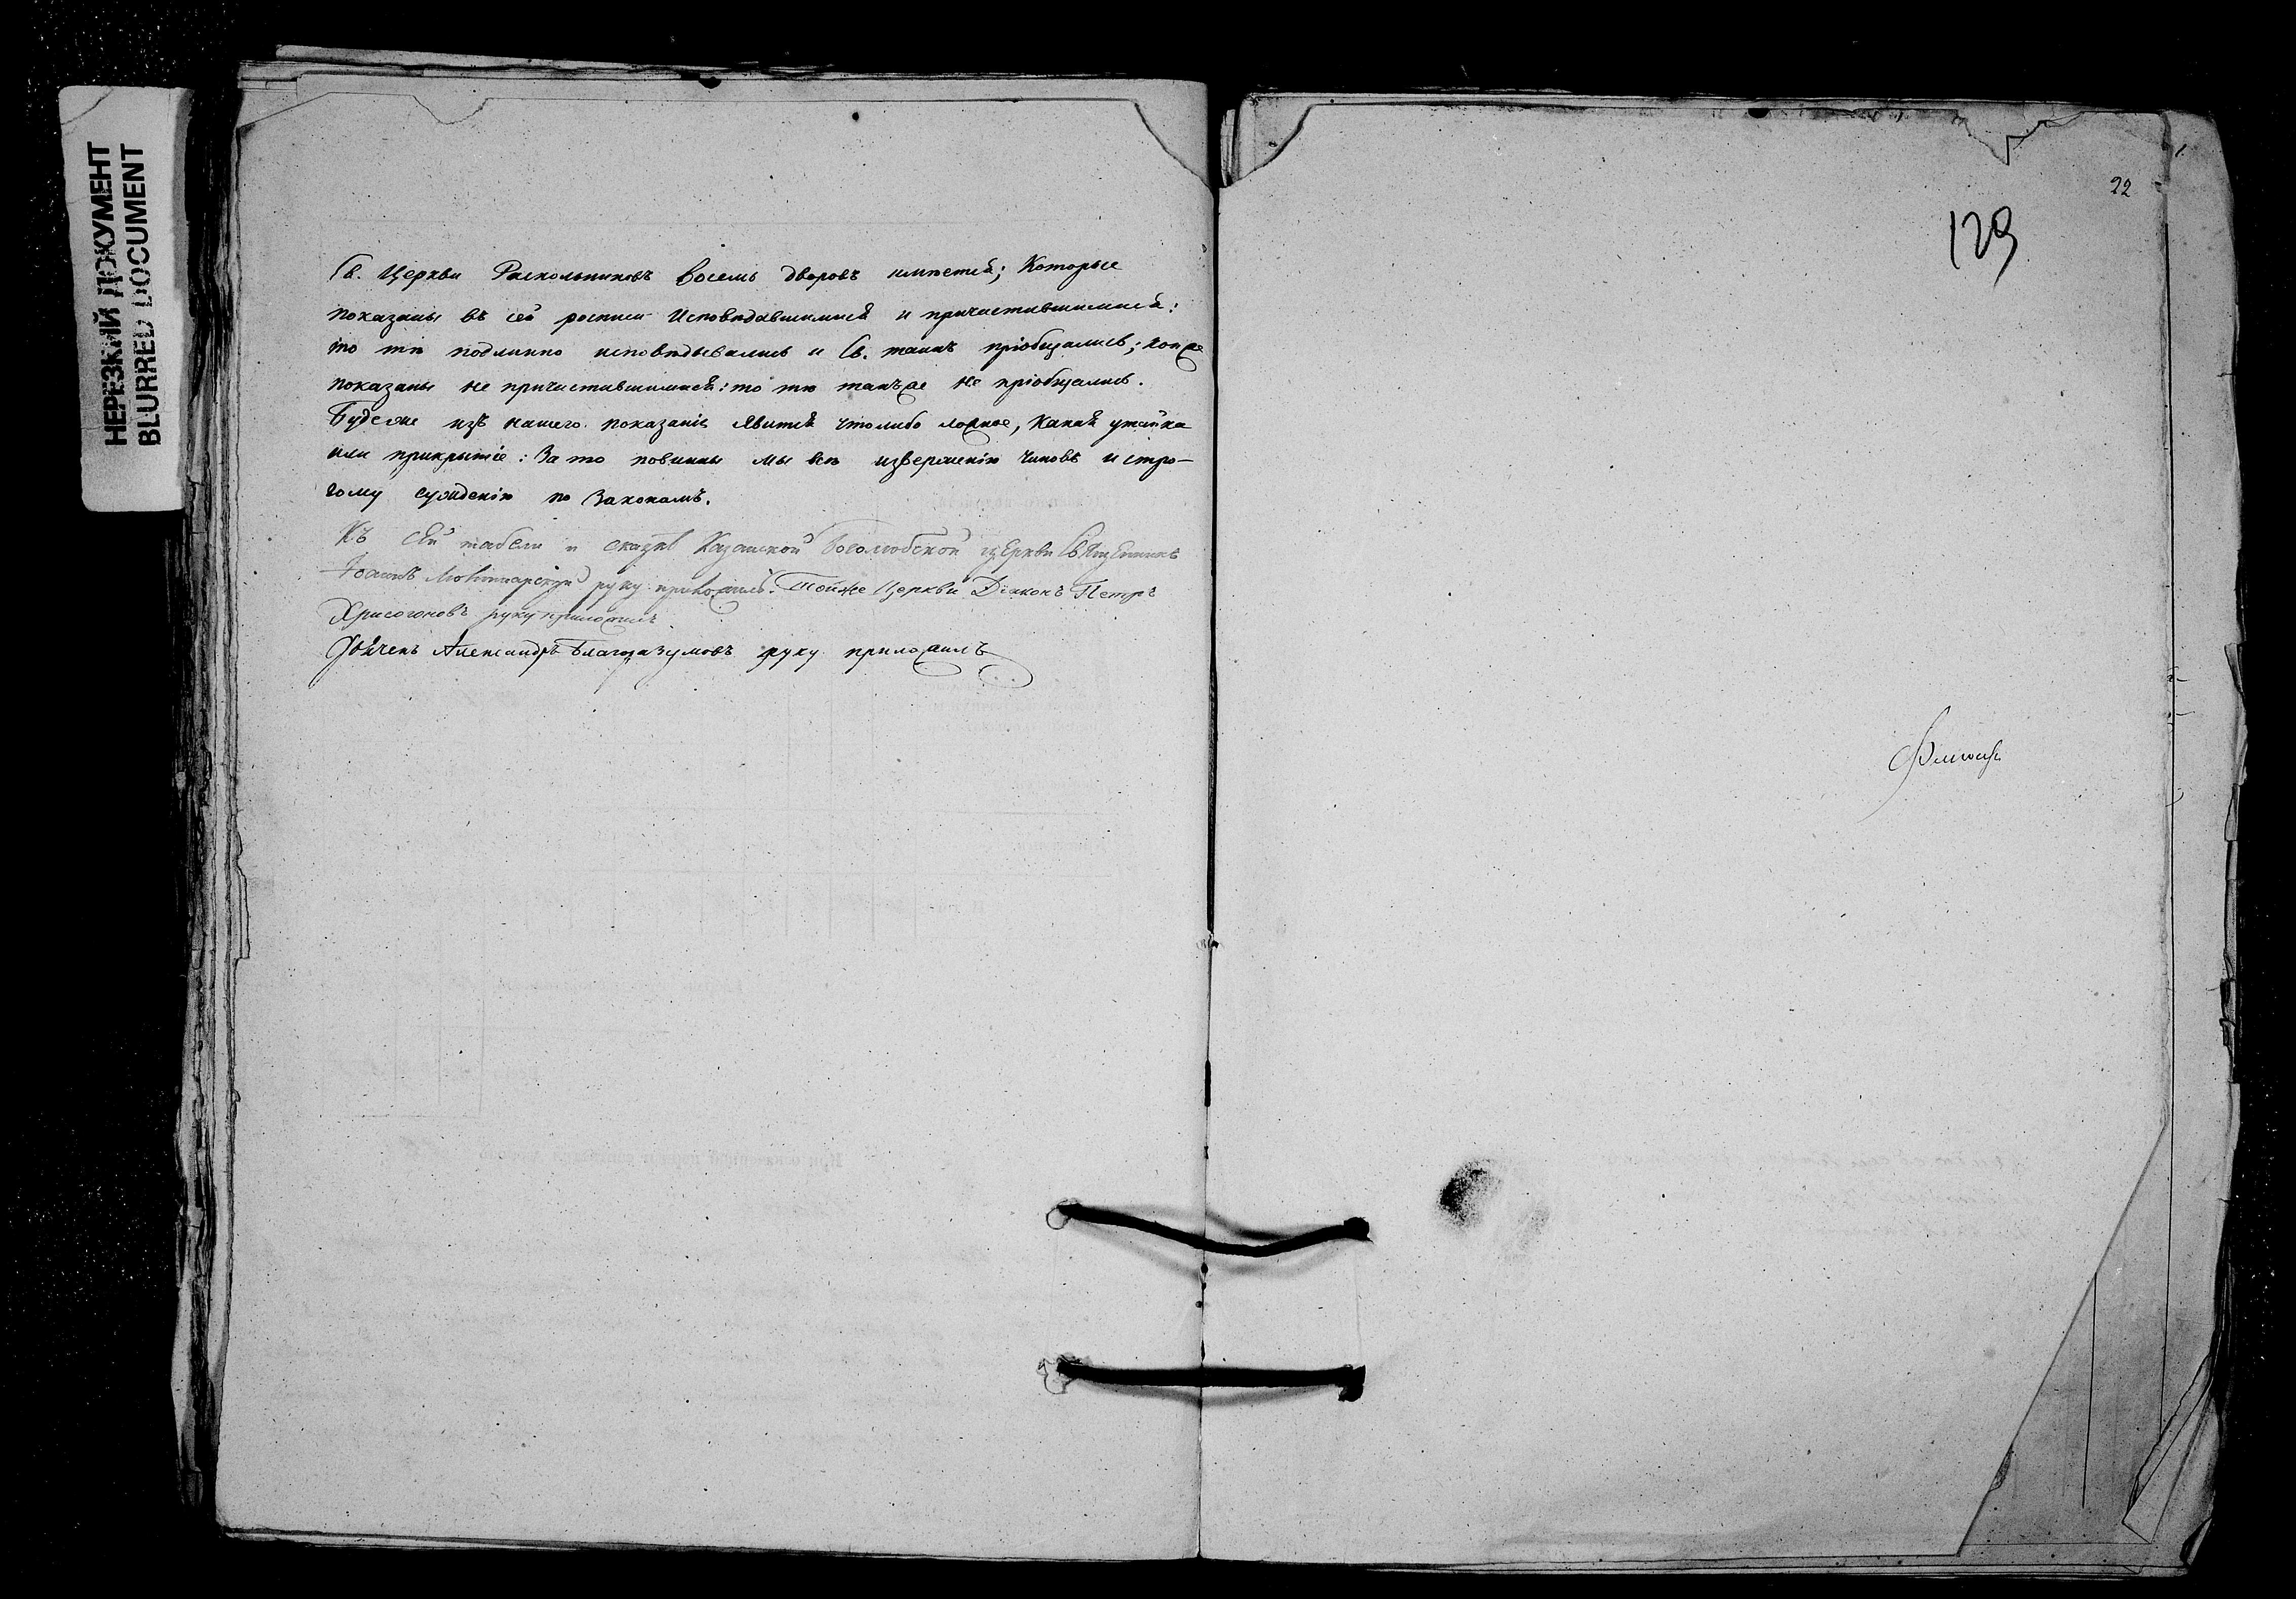 НЕРЕЗКИЙ ДОКУМЕНТ
BLURRED DOCUMENT
Св. Церкви Раскольниковъ восемь дворовъ имѣется; Которые
показаны въ сей росписи Исповѣдавшимися и причастившимися:
то тѣ подлинно исповѣдывались и Св. таинъ пріобщались; кои же
показаны не причастившимися: то тѣ также не пріобщались.
Буде же изъ нашего показанія явится что либо ложное, какая утайка
или прикрытіе: За то повинны мы всѣ изверженію чиновъ и стро-
гому сужденію по Законамъ.
Къ сей табели и сказкѣ Казанской Боголюбской церкви Священникъ
Іоаннъ руку приложилъ. Тойже Церкви Діаконъ Петръ
Хрисогоновъ руку приложилъ
Александръ Благоразумовъ руку приложилъ
22
129